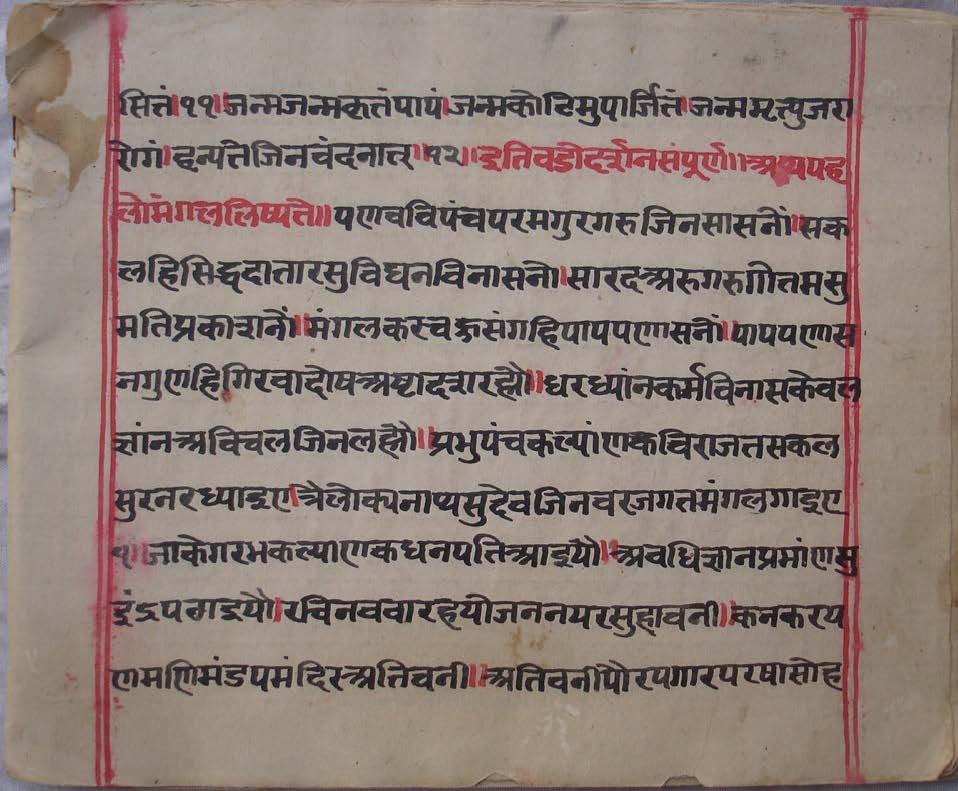 सितं॥११॥जन्मजन्मकृतंपापं॥जन्मकोटिमुपार्जितं॥जन्ममृत्युजरा
रोगं॥हन्यतेजिनवंदनात्॥१२॥इतिवडोदर्शनसंपूर्ण॥अथपह
लोमंगललिष्यते॥पणवविपंचपरमगुरगरुजिनसासनौं॥सक
लहिसिद्धदातारसुविघनविनासनौ॥सारदअरुगरुगौतमसु
मतिप्रकाशनौं॥मंगलकरचक्रसंगहिपापपणासनौं॥पापपणास
नगुणहिगिरवादोषअष्टादशरह्यौ॥धरध्यांनकर्मविनासकेवल
ज्ञांनअविचलजिनलह्यौ॥प्रभुपंचकल्यांणकविराजतसकल
सुरनरध्याइए॥त्रैलोक्यनाथसुदेवजिनवरजगतमंगलगाइए
१॥जाकेगरभकल्याणकधनपतिआइयौ॥अवधिज्ञानप्रमांणसु
इंद्रपठाइयौ॥रचिनववारहयोजननयरसुहावनी॥कनकरय
णमणिमंडपमंदिरअतिवनी॥अतिवनीपौरपगारपरषासोह